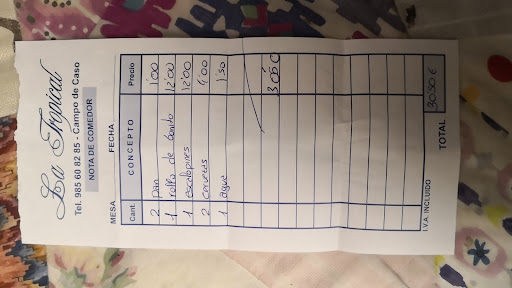 La Tropical
Tel. 985 60 82 85 - Campo de Caso
NOTA DE COMEDOR
MESA FECHA
Cant. CONCEPTO Precio
2 pan 1'00
1 rollo de bonito 12'00
1 escalopines 12'00
2 cervezas 4'00
1 agua 1'50
30'50
I.V.A. INCLUIDO TOTAL 30'50 €